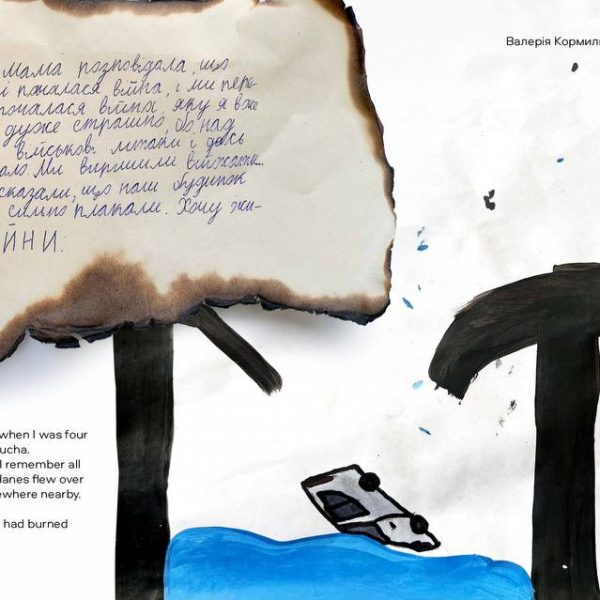 Валерія Кормил
мама розповідала, що
і почалася війна, і ми пере-
почалася війна, яку я вже
дуже страшно, бо над
військові літаки і десь
ало. Ми вирішили виїжати.
сказали, що наш будинок
сильно плакали. Хочу жи-
ЙНИ.
when I was four
ucha.
I remember all
lanes flew over
ewhere nearby.
had burned